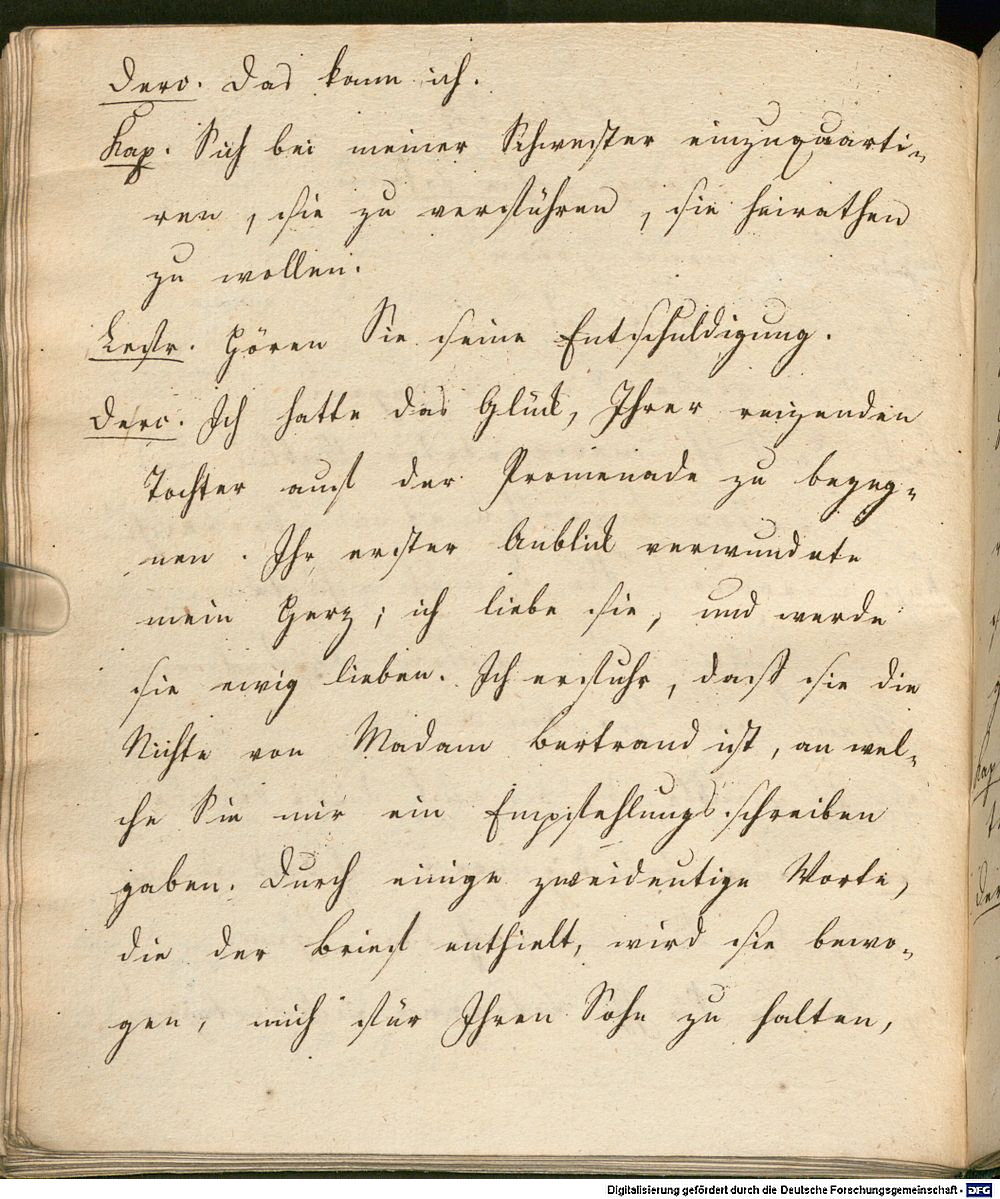 Derv. Das kann ich.
Kap. Sich bei meiner Schwester einzuquarti-
ren, sie zu verführen, sie heirathen
zu wollen.
Lestr. Hören Sie seine Entschuldigung.
Derv. Ich hatte das Glück, Ihrer reizenden
Tochter auf der Promenade zu begeg-
nen. Ihr erster Anblick verwundete
mein Herz; ich liebe sie, und werde
sie ewig lieben. Ich erfuhr, daß sie die
Nichte von Madam Bertrand ist, an wel-
che Sie mir ein Empfehlungsschreiben
gaben. Durch einige zweideutige Worte,
die der Brief enthielt, wird sie bewo-
gen, mich für Ihren Sohn zu halten,
Digitalisierung gefördert durch die Deutsche Forschungsgemeinschaft - DFG